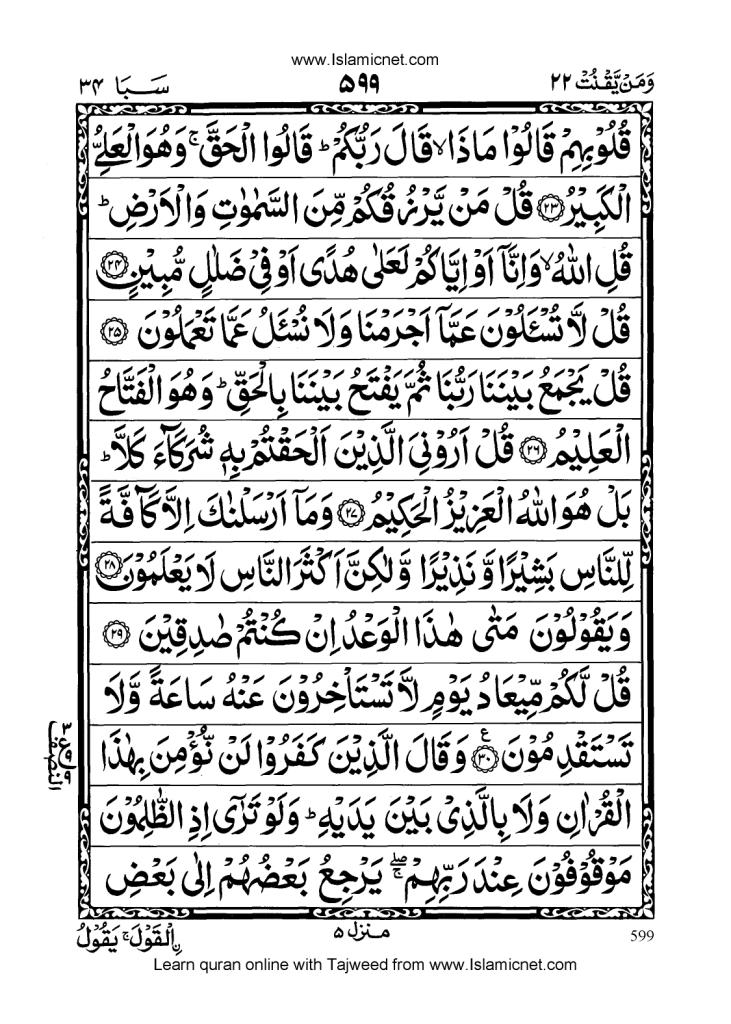 www.Islamicnet.com
وَمَنْ يَّقْنُتْ ٢٢
٥٩٩
سَبَا ٣٤
قُلُوْبِهِمْ قَالُوْا مَاذَا ۙ قَالَ رَبُّكُمْ ؕ قَالُوا الْحَقَّ ۚ وَهُوَ الْعَلِيُّ
الْكَبِيْرُ ﴿٢٣﴾ قُلْ مَنْ يَّرْزُقُكُمْ مِّنَ السَّمٰوٰتِ وَالْاَرْضِ ؕ
قُلِ اللّٰهُ ۙ وَاِنَّاۤ اَوْ اِيَّاكُمْ لَعَلٰى هُدًى اَوْ فِيْ ضَلٰلٍ مُّبِيْنٍ ﴿٢٤﴾
قُلْ لَّا تُسْـَٔلُوْنَ عَمَّاۤ اَجْرَمْنَا وَلَا نُسْـَٔلُ عَمَّا تَعْمَلُوْنَ ﴿٢٥﴾
قُلْ يَجْمَعُ بَيْنَنَا رَبُّنَا ثُمَّ يَفْتَحُ بَيْنَنَا بِالْحَقِّ ؕ وَهُوَ الْفَتَّاحُ
الْعَلِيْمُ ﴿٢٦﴾ قُلْ اَرُوْنِيَ الَّذِيْنَ اَلْحَقْتُمْ بِهٖ شُرَكَآءَ كَلَّا ؕ
بَلْ هُوَ اللّٰهُ الْعَزِيْزُ الْحَكِيْمُ ﴿٢٧﴾ وَمَاۤ اَرْسَلْنٰكَ اِلَّا كَآفَّةً
لِّلنَّاسِ بَشِيْرًا وَّنَذِيْرًا وَّلٰكِنَّ اَكْثَرَ النَّاسِ لَا يَعْلَمُوْنَ ﴿٢٨﴾
وَيَقُوْلُوْنَ مَتٰى هٰذَا الْوَعْدُ اِنْ كُنْتُمْ صٰدِقِيْنَ ﴿٢٩﴾
قُلْ لَّكُمْ مِّيْعَادُ يَوْمٍ لَّا تَسْتَاْخِرُوْنَ عَنْهُ سَاعَةً وَّلَا
تَسْتَقْدِمُوْنَ ﴿٣٠﴾ ع وَقَالَ الَّذِيْنَ كَفَرُوْا لَنْ نُّؤْمِنَ بِهٰذَا
الْقُرْاٰنِ وَلَا بِالَّذِيْ بَيْنَ يَدَيْهِ ؕ وَلَوْ تَرٰۤى اِذِ الظّٰلِمُوْنَ
مَوْقُوْفُوْنَ عِنْدَ رَبِّهِمْ ۖۚ يَرْجِعُ بَعْضُهُمْ اِلٰى بَعْضِ
النصف
ِۨالْقَوْلَ ۚ يَقُوْلُ
منزل ٥
599
Learn quran online with Tajweed from www.Islamicnet.com